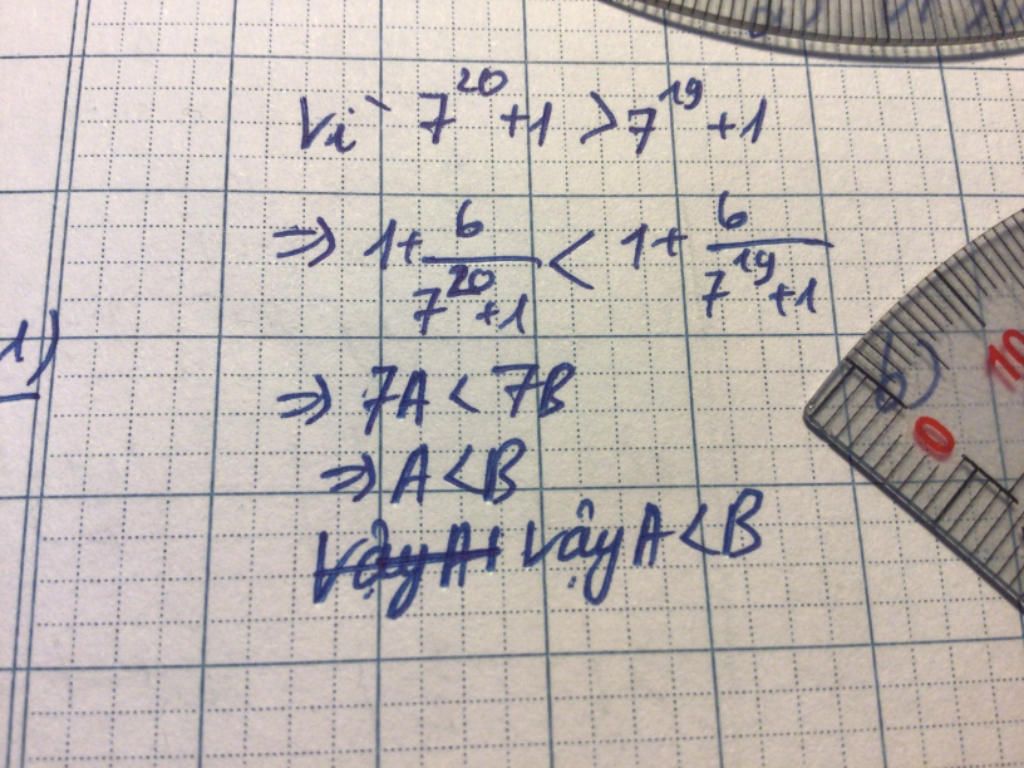 Vì 7^20 + 1 > 7^19 + 1
=> 1 + 6/(7^20 + 1) < 1 + 6/(7^19 + 1)
1)
=> 7A < 7B
=> A < B
Vậy A < B
b)
0
10